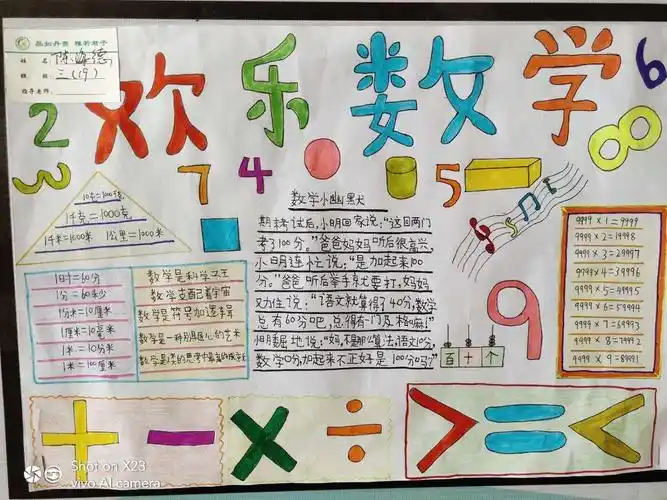 品如丹桂 雅若君子
姓 名
陈海德
班 级
三(19)
指导老师:
欢乐数学
2
3
7
4
5
6
8
9
千克=1000克
千米=1000米 1公里=1000米
1时=60分
1分=60秒
1分米=10厘米
1厘米=10毫米
1米=10分米
1米=100厘米
数学是科学之王
数学支配着宇宙
数学是符号加逻辑
数学是一种别具匠心的艺术
数学小幽默
期末考试后,小明回家说:“这回两门
考了100分。”爸爸妈妈听后很高兴,
小明连忙说:“是加起来100
分。”爸爸听后举手就要打,妈妈
又忙说:“语文就算得了40分,数学
总有60分吧,总得有一门及格嘛!”
小明委屈地说:“妈,不是那么算法,语文10分,
数学0分加起来不正好是100分吗?”
百 十 个
9999 × 1 = 9999
9999 × 2 = 19998
9999 × 3 = 29997
9999 × 4 = 39996
9999 × 5 = 49995
9999 × 6 = 59994
9999 × 7 = 69993
9999 × 8 = 79992
9999 × 9 = 89991
+ - × ÷ > = <
Shot on X23
vivo AI camera